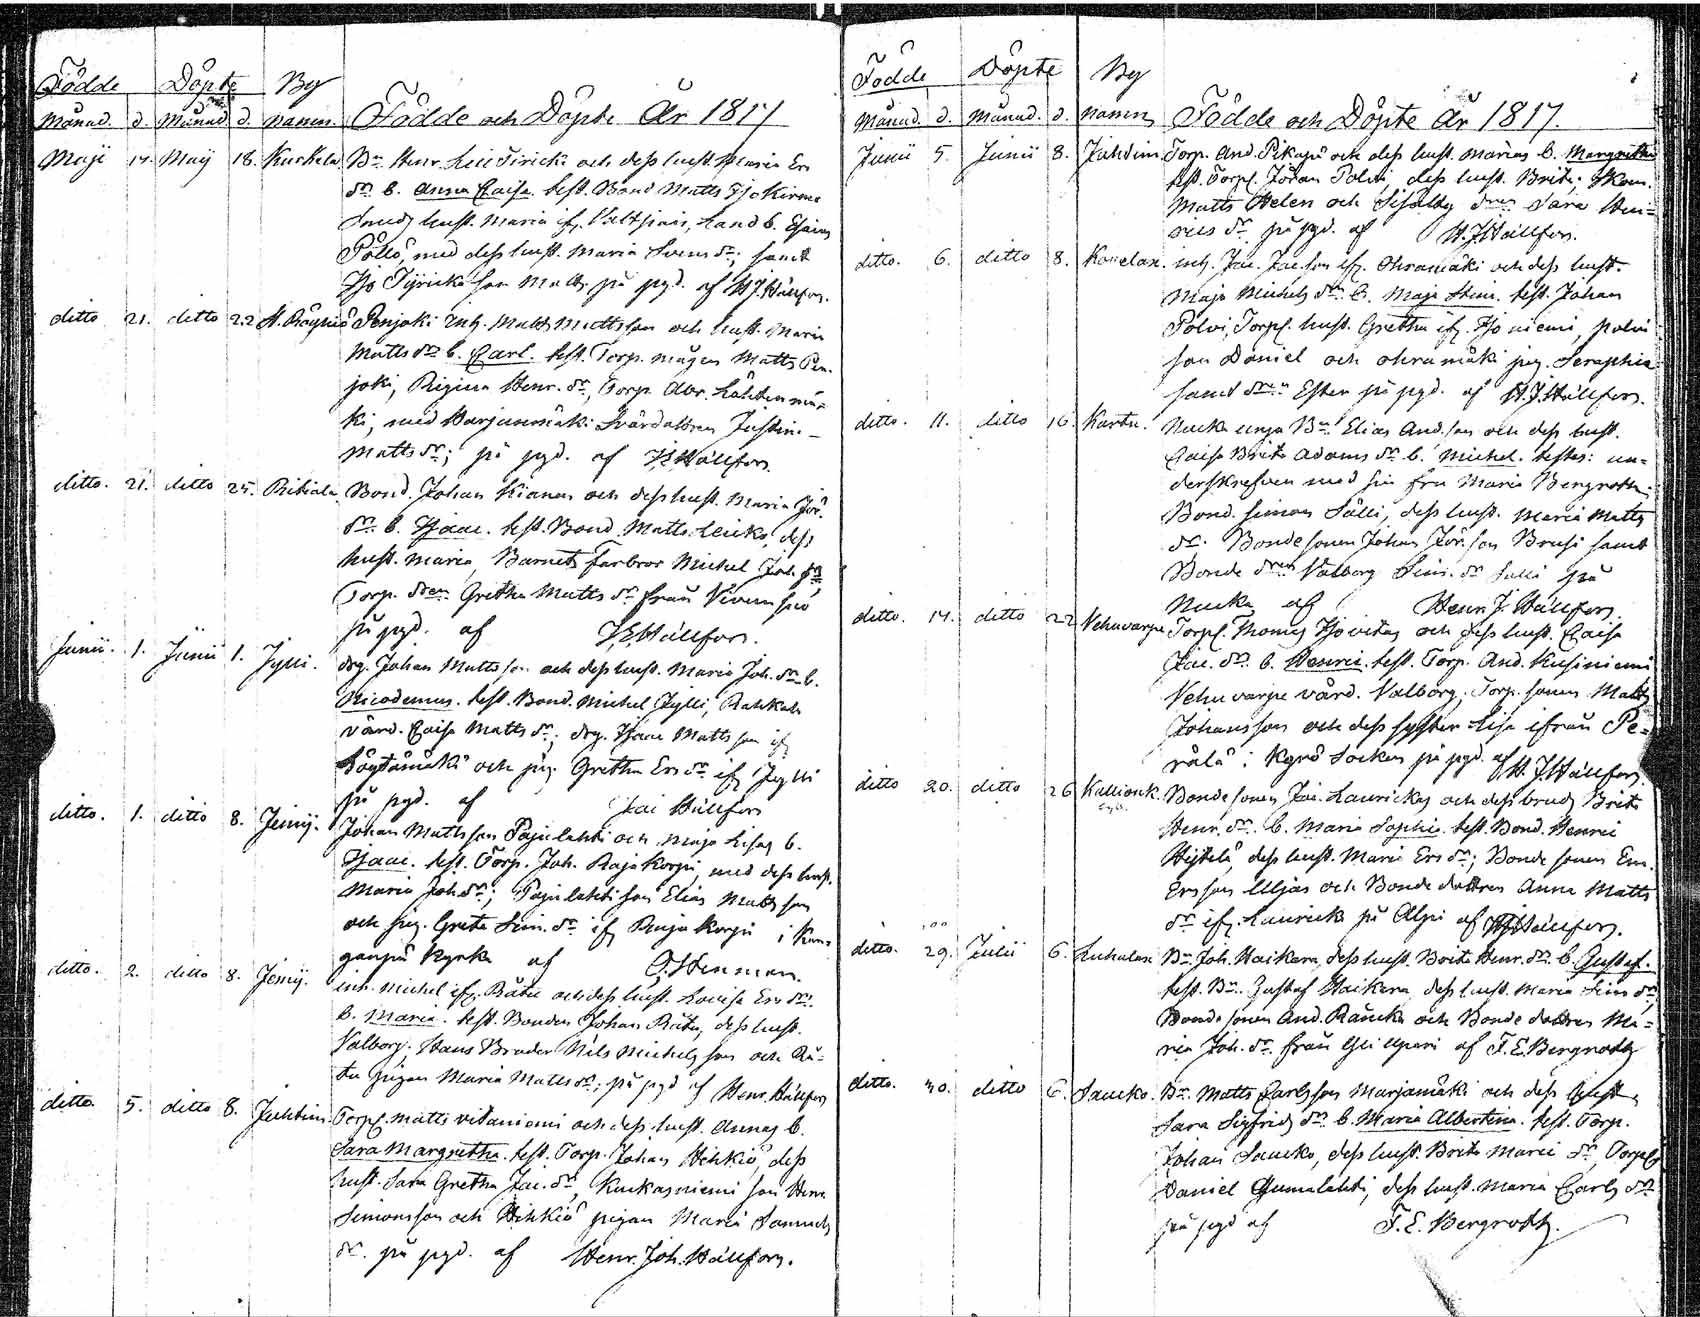 Födde Döpte By
Månad. d. Månad d. namn. Födde och Döpte År 1817
Maji 17. Maij 18. Kuckela Bn Henr. och dess hust. Maria Ers
dr b. Anna Caisa. test. Bond Matts
hust. Maria ifr. Land b. Esaias
Pöllö, med dess hust. Maria Svens dr; samt
son Matts på pgd. af H J Hällfors.
ditto 21. ditto 22 Penjoki Inh. Matts Mattsson och hust. Maria
Matts dr b. Carl. test. Torp. mågen Matts Pen-
joki, Regina Henr. dr, Torp. Abr. Lähteenmä-
ki, med Harjunmäki Svärdottren Justina
Matts dr; på pgd. af HJ Hällfors.
ditto. 21. ditto 25. Riihiala Bond. Johan Kianen och dess hust. Maria Joh.
dr b. Isaac. test. Bond. Matts dess
hust. Maria, Barnets farbror Michel Joh. son
Torp. dren Gretha Matts dr från
på pgd. af Hällfors.
Junii. 1. Junii 1. Jylli. drg. Johan Mattsson och dess hust. Maria Joh. dr b.
Nicodemus. test. Bond. Michel Jylli, Rahkala
värd. Caisa Matts dr, drg. Isaac Mattsson ifr
och pig. Gretha Ers dr if Jylli
på pgd. af Hällfors
ditto. 1. ditto 8. Jämij. Johan Mattsson Pajulahti och Maja Lisas b.
Isaac. test. Torp. Joh. Rajakorpi, med dess hust.
Maria Joh dr; Pajulahti son Elias Mattsson
och pig. Greta Sim. dr if Rajakorpi i Kan-
ganpä Kyrka af O. Henman.
ditto. 2. ditto 8. Jämij. inh. Michel ifr. Rätu och dess hust. Lovisa Ers dr.
b. Maria. test. Bonden Johan Rätu, dess hust.
Valborg; Hans Broder Nils Michelsson och Rä-
tu pigan Maria Matts dr; på pgd af Henr. Hällfors
ditto. 5. ditto 8. Juhtim. Torp. Matts Vitaniemi och dess hust. Annas b.
Sara Margretha. test. Torp. Johan Hihkiö, dess
hust. Sara Gretha Jac. dr, Kuckasniemi son Henr
Simonsson och Hihkiö pigan Maria Samuels
dr. på pgd. af Henr. Joh. Hällfors.
Födde Döpte By
Månad. d. Månad. d. namn Födde och Döpte År 1817.
Junii 5. Junii 8. Juhtim. Torp. And. Pikajä och dess hust. Marias b. Margretha
test. Torp. Johan Polvi dess hust. Brita; Skom.
Matts Helen och dren Sara Hen-
rics dr på pgd. af H. J Hällfors.
ditto. 6. ditto 8. inh. Jac. Jacsson ifr. Ohramäki och dess hust.
Maja Michels dr b. Maja Stina. test. Johan
Polvi, Torp. hust. Gretha ifr. Isoniemi, Polvi
son Daniel och Ohramäki pig. Seraphia
samt dren Ester på pgd. af H. J. Hällfors.
ditto. 11. ditto 16. Kartu. unga Bn Elias And. son och dess hust.
Caisa Brita Adams dr b. Michel. testes: un-
derskrefven med sin fru Maria Bergroth;
Bond. Simon Sälli, dess hust. Maria Matts
dr. Bondesonen Johan Jör. son Brusi samt
Bonde dren Valborg Sim. dr Sälli på
af Henr J. Hällfors.
ditto. 17. ditto 22 Vehuvarpe Torp. Thomas och dess hust. Caisa
Jac. dr. b. Henric. test. Torp. And. Kusiniemi
Vehuvarpe värd. Valborg, Torp. sonen Matts
Johansson och dess syster Lisa ifrån Pe-
rälä i Kyrö Socken på pgd. af H. J. Hällfors.
ditto 20. ditto 26 Kallionk. Bonde sonen Jac. Laurickas och dess bruds Brita
Henr. dr. b. Maria Sophia. test. Bond. Henric
Heittelä, dess hust. Maria Ers dr; Bonde sonen Em.
Ersson Uljas och Bonde dottren Anna Matts
dr ifr. Lauricka på Alpi af HJ Hällfors.
ditto. 29. Julii 6. Luhalax Bn Joh. Haikara, dess hust. Brita Henr. dr. b. Gustaf.
test. Bn. Gustaf Haikara dess hust. Maria Sim dr,
Bonde sonen And. Räncka och Bonde dottren Ma-
ria Joh. dr. från Ylillpari af F. E. Bergroth
ditto. 30. ditto 6. Saucko. Bn. Matts Carlsson Marjamäki och dess hust.
Sara Sigfrids dr b. Maria Albertina. test. Torp.
Johan Saucko, dess hust. Brita Marie dr, Torp.
Daniel dess hust. Maria Carls dr
på pgd af F. E. Bergroth.